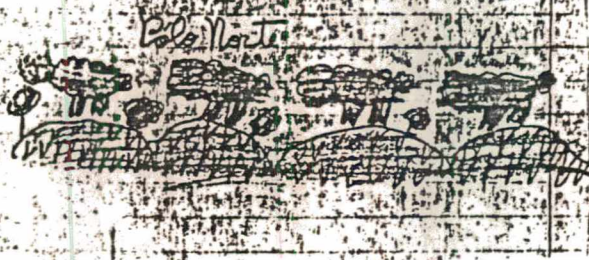 Polo Norte